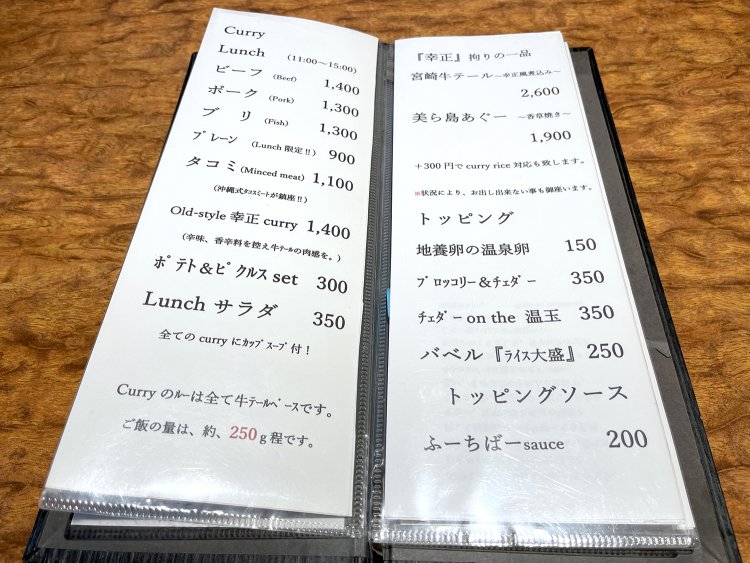 Curry
Lunch (11:00～15:00)
ビーフ (Beef) 1,400
ポーク (Pork) 1,300
ブリ (Fish) 1,300
ﾌﾟレーン (Lunch 限定‼) 900
タコミ (Minced meat) 1,100
(沖縄式ﾀｺｽﾐｰﾄが鎮座‼)
Old-style 幸正 curry 1,400
(辛味、香辛料を控え牛ﾃｰﾙの肉感を。)
ﾎﾟテト＆ﾋﾟクルス set 300
Lunch サラダ 350
全ての curry にｶｯﾌﾟｽｰﾌﾟ付！
Curry のﾙｰは全て牛ﾃｰﾙﾍﾞｰｽです。
ご飯の量は、約、250ｇ程です。
『幸正』拘りの一品
宮崎牛テール～幸正風煮込み～
2,600
美ら島あぐー ～香草焼き～
1,900
＋300 円で curry rice 対応も致します。
※状況により、お出し出来ない事も御座います。
トッピング
地養卵の温泉卵 150
ﾌﾞロッコリー＆ﾁｪﾀﾞｰ 350
ﾁｪﾀﾞｰ on the 温玉 350
バベル『ﾗｲｽ大盛』250
トッピングソース
ふーちばーsauce 200